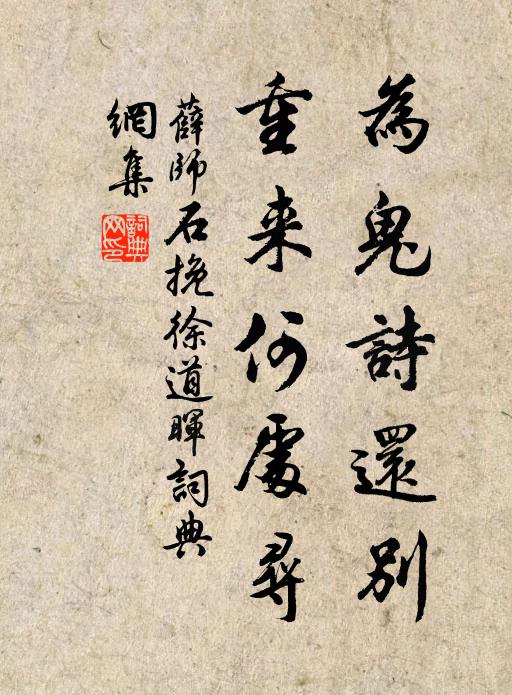 為鬼詩還別
重来何處尋
薛師石挽徐道暉詞典
網集
詞典
网印